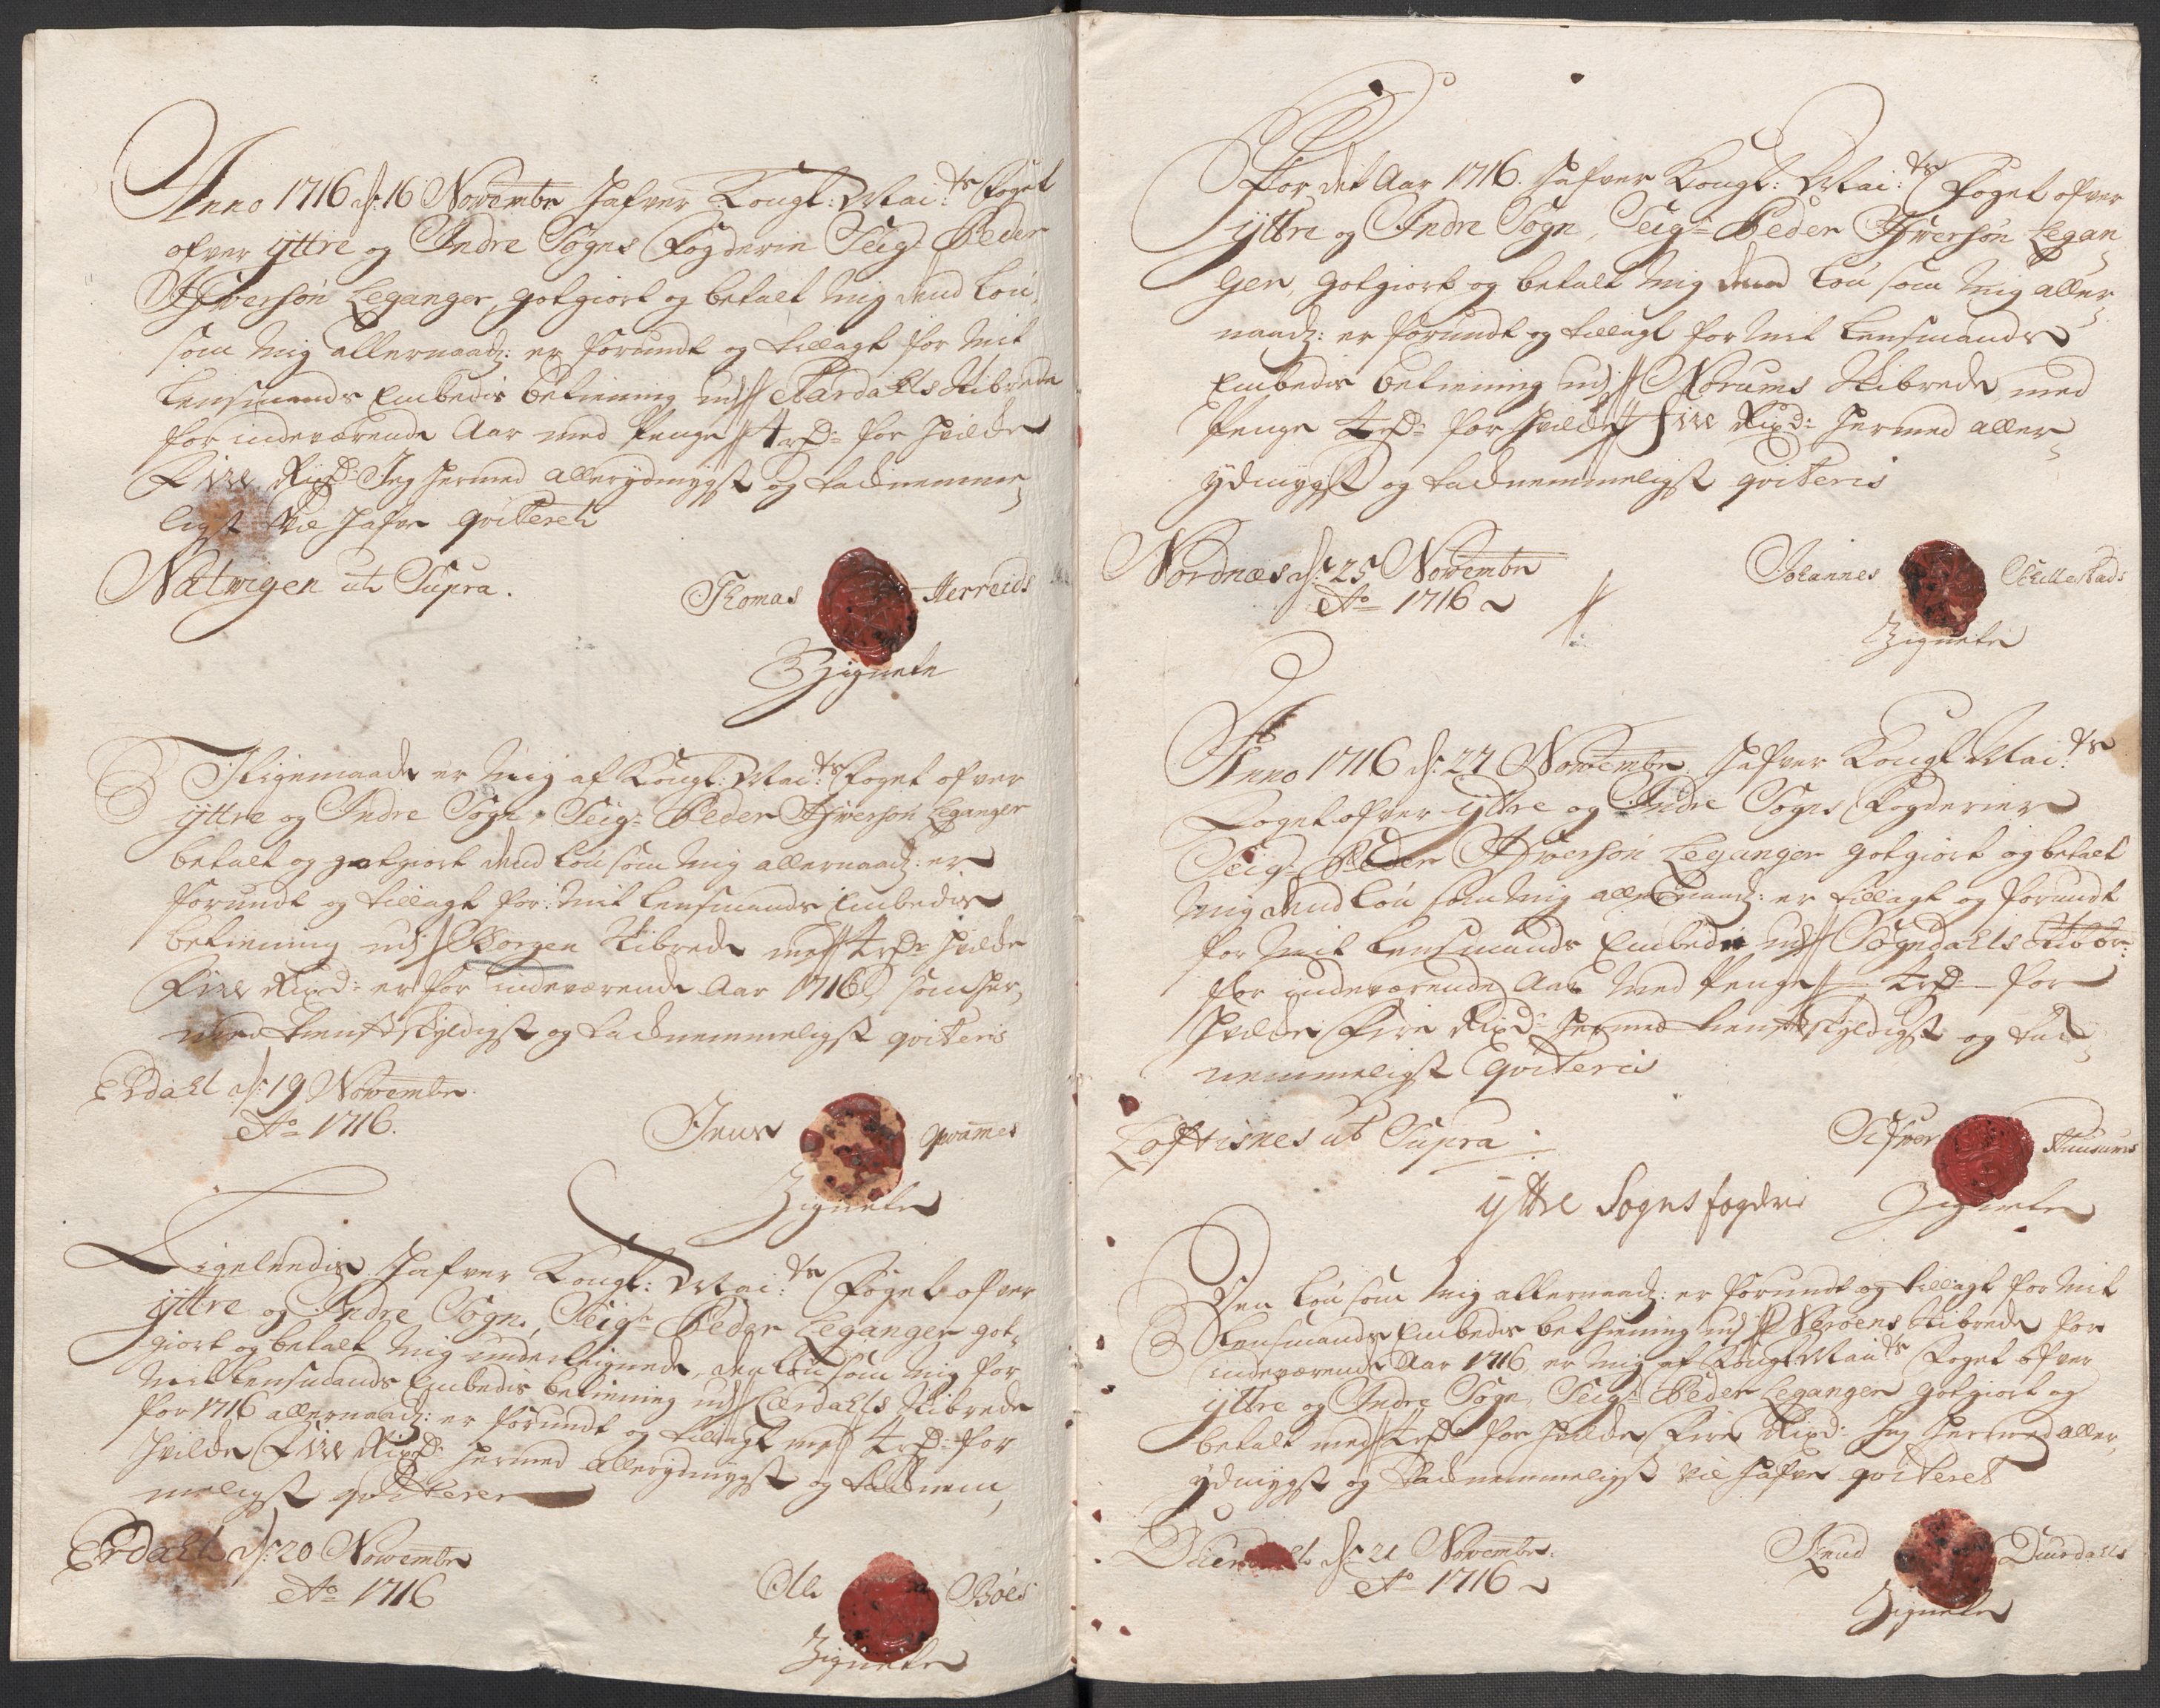 Anno 1716 d: 16 Novembr hafver Kongl: Mai:ts Foget
ofver yttre og Indre Sogns Fogderie Seig:r Peder
Ifversøn Leganger, gotgiort og betalt mig dend Løn,
som mig allernaad: er forundt og tillagt for mit
Lensmands Embedis betiening udj Aardahls Skibrede
for indeværende Aar med Penge 4 rd: for hvilche
Fire Rixd: Jeg hermed allerydmygst og tachnemme
ligst vil hafve qviteret
Nætwigen ut Supra.
Thomas Herreids
Zignete
Iligemaade er mig af Kongl: Mai:ts Foget ofver
yttre og Indre Sogn, Seig:r Peder Ifversøn Leganger
betalt og gotgiort dend Løn som mig allernaad: er
forundt og tillagt for mit Lensmands Embedis
betiening udj Borgen Skibrede med 4 rd: hvilche
Fire Rixd: er for indeværende Aar 1716, som her
med tienstskyldigst og tachnemmeligst qviteris
Erdahl d: 19 Novembr.
Ao 1716.
Jens Qvames
Zignete
Ligeledis hafver Kongl: Mai:ts Foget ofver
yttre og Indre Sogn, Seig:r Peder Leganger got
giort og betalt mig underteignede, den Løn som mig for
mit Lensmands Embedis betiening udj Lærdahls Skibrede
for 1716 allernaad: er forundt og tillagt med 4 rd: for
hvilche Fire Rixd: hermed allerydmygst og tachnem
meligst qviterer
Erdahl d: 20 Novembr
Ao 1716
Olle Bøes
Zignete
For det Aar 1716. hafver Kongl: Mai:ts Foget ofver
yttre og Indre Sogn, Seig:r Peder Ifversøn Legan
ger, gotgiort og betalt mig dend Løn som mig aller
naad: er forundt og tillagt for mit Lensmands
Embedis betiening udj Norums Skibrede med
Penge 4 rd: for hvilche Fire Rixd: hermed aller
ydmygst og tachnemmeligst qviteris
Nordnæs d: 25 Novembr
Ao 1716
Johannes Schiellestads
Zignete
Anno 1716 d: 27 Novembr. hafver Kongl Mai:ts
Foget ofver yttre og Indre Sogns Fogderier
Seig:r Peder Ifversøn Leganger gotgiort og betalt
mig dend Løn som mig allernaad: er tillagt og forundt
for mit Lensmands Embede udj Sogndahls Skibr:
for indeværende Aar med Penge 4 rd: for
hvilche Fire Rixd: hermed tienstskyldigst og tach
nemmeligst qviteris
Loftisnes ut Supra
Sifver
Zignete
yttre Sogns fogderi
Den Løn som mig allernaad: er forundt og tillagt for mit
Lensmands Embedis bethiening udj Værøens Skibrede for
indeværende Aar 1716, er mig af Kongl Mai:ts Foget ofver
yttre og Indre Sogn, Seig:r Peder Leganger gotgiort og
betalt med 4 rd: for hvilche Fire Rixd: Jeg hermed aller
ydmygst og tachnemmeligst vil hafve qviteret
d: 21 Novembr.
Ao 1716
Knud Duurdahls
Zignete